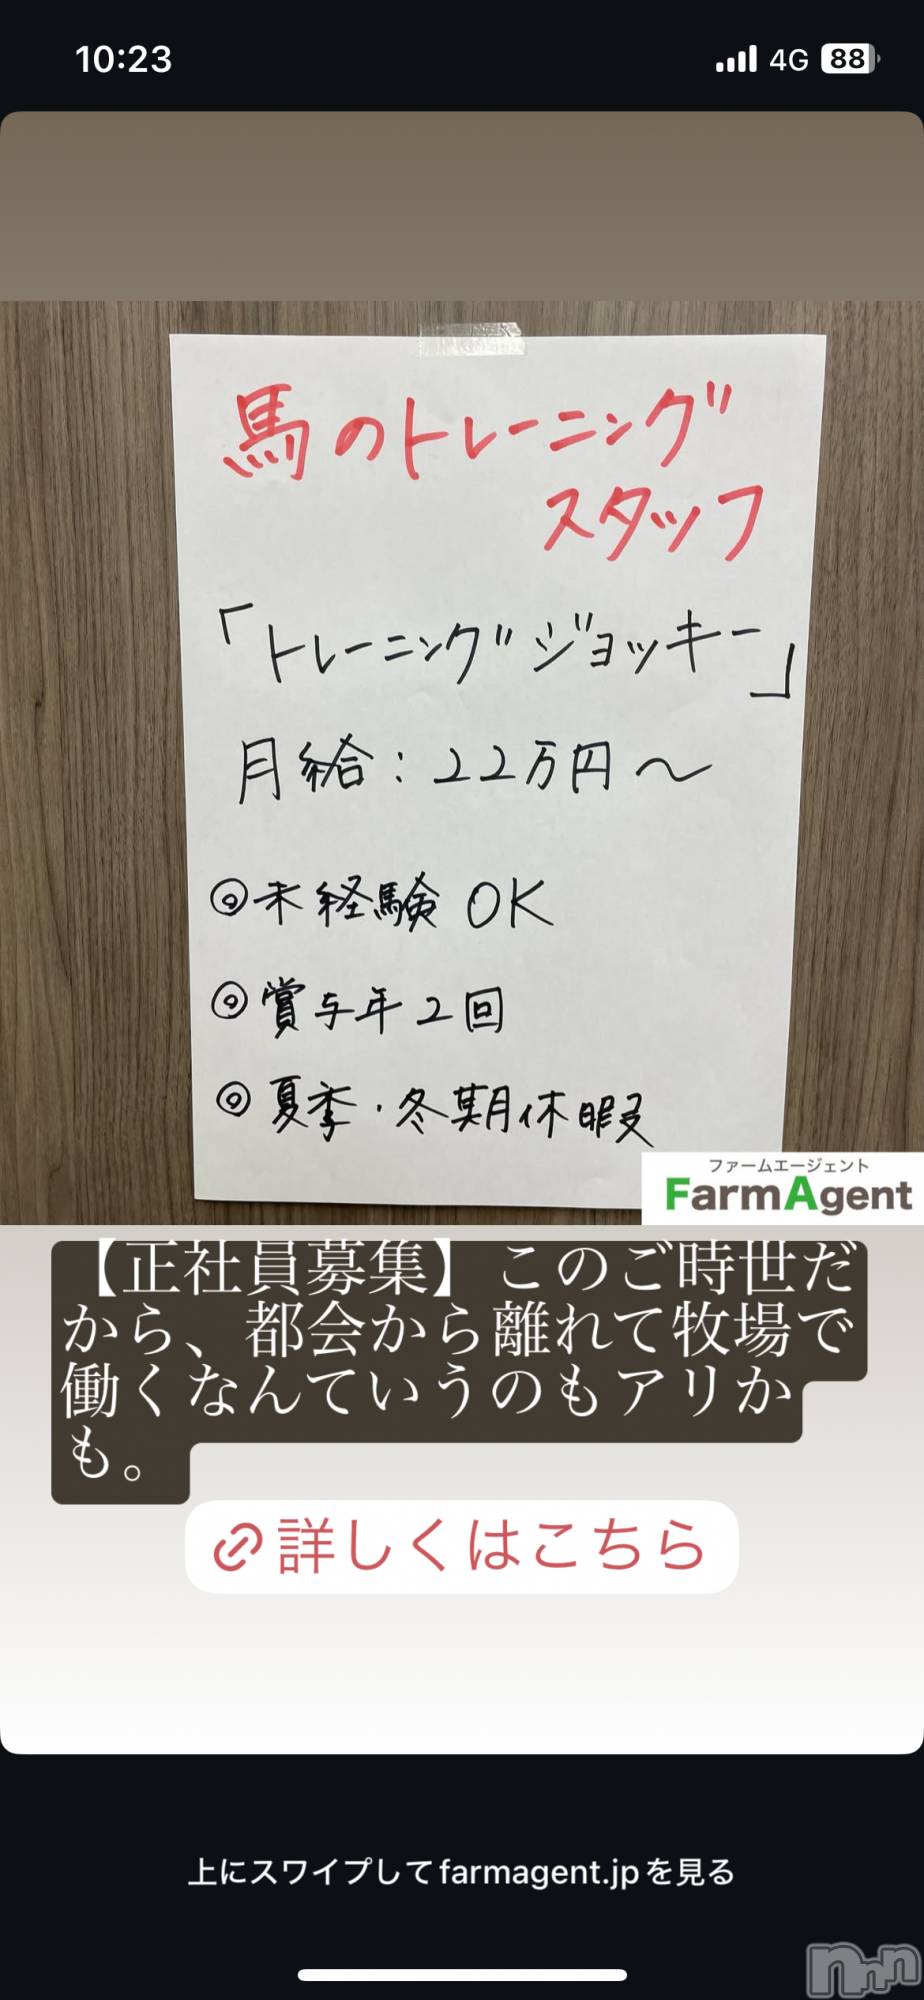 10:23
4G 88
馬のトレーニング
スタッフ
「トレーニングジョッキー」
月給：22万円〜
◎未経験OK
◎賞与年2回
◎夏季・冬期休暇
ファームエージェント
FarmAgent
【正社員募集】このご時世だ
から、都会から離れて牧場で
働くなんていうのもアリか
も。
詳しくはこちら
上にスワイプしてfarmagent.jpを見る
nnn